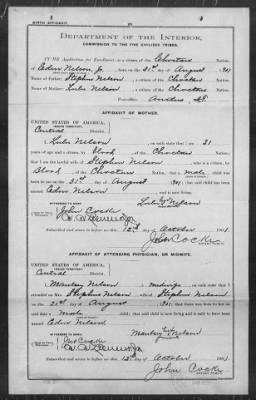 BIRTH AFFIDAVIT.
DEPARTMENT OF THE INTERIOR,
COMMISSION TO THE FIVE CIVILIZED TRIBES.
IN RE Application for Enrollment, as a citizen of the Choctaw Nation,
of Edw Nelson Jr. born on the 21st day of August, 1901
Name of Father: Stephen Nelson a citizen of the Choctaw Nation.
Name of Mother: Nelson a citizen of the Choctaw Nation.
Postoffice
AFFIDAVIT OF MOTHER.
UNITED STATES OF AMERICA,
INDIAN TERRITORY,
Central District.
I, Nelson, on oath state that I am 21
years of age and a citizen, by blood, of the Choctaw Nation;
that I am the lawful wife of Stephen Nelson, who is a citizen, by
Blood, of the Choctaw Nation; that a male child was
born to me on 21st day of August, 1901; that said child has been
named Nelson, and is now living.
Nelson
WITNESSES TO MARK:
John Cocke
Subscribed and sworn to before me this 12th day of October, 1901.
John Cocke
AFFIDAVIT OF ATTENDING PHYSICIAN, OR MIDWIFE.
UNITED STATES OF AMERICA,
INDIAN TERRITORY,
Central District.
I, Nelson, a midwife, on oath state that I
attended on Mrs. Stephen Nelson, wife of Stephen Nelson
on the 21st day of August, 1901; that there was born to her on
said date a male child; that said child is now living and is said to have been
named Nelson
Nelson
WITNESSES TO MARK:
Jno Cocke
Subscribed and sworn to before me this 12th day of October, 1901.
John Cocke